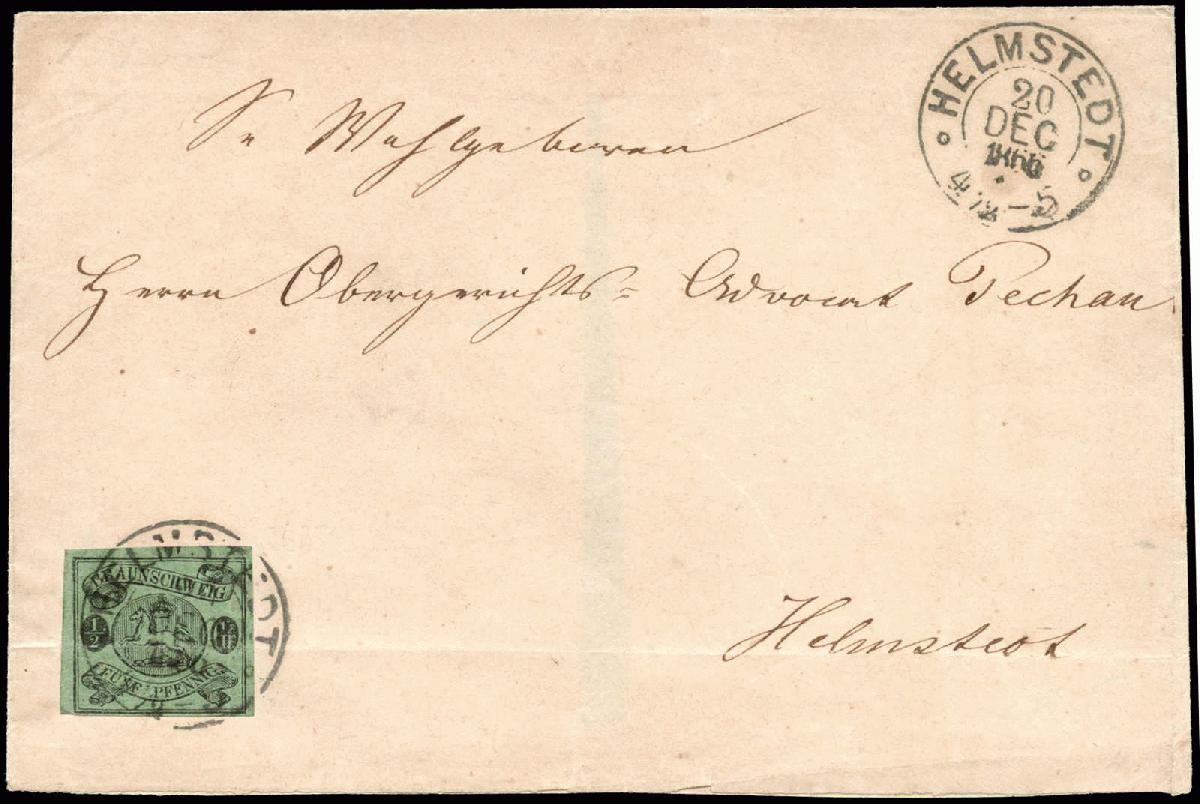 HELMSTEDT
20
DEC
4½–5
Sr Wohlgeboren
Herrn Obergerichts= Advocat Pechau
Helmstedt
HELMSTEDT
BRAUNSCHWEIG
1/2
FÜNF PFENNIG